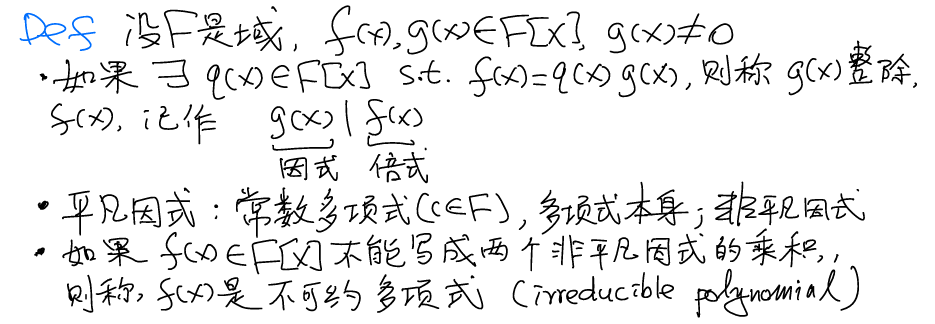 Def 设F是域, f(x),g(x)∈F[x], g(x)≠0
· 如果 ∃ q(x)∈F[x] s.t. f(x)=q(x)g(x), 则称 g(x)整除,
f(x), 记作 g(x) | f(x)
因式 倍式
· 平凡因式: 常数多项式(c∈F), 多项式本身; 非平凡因式
· 如果 f(x)∈F[x] 不能写成两个非平凡因式的乘积,,
则称, f(x)是不可约多项式 (irreducible polynomial)